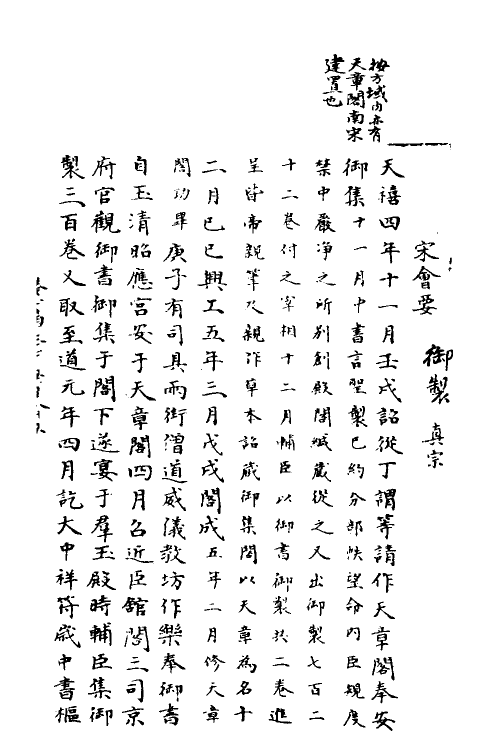 按方域内亦有
天章閣南宋
建置也
宋會要
御製 真宗
天禧四年十一月壬戌詔從丁謂等請作天章閣奉安
御集十一月中書言聖製已約分部帙望命内臣規度
禁中嚴净之所别創殿閣緘藏從之又出御製七百二
十二卷付之宰相十二月輔臣以御書御製於二卷進
呈皆帝親筆及親作草本詔藏御集閣以天章為名十
二月己巳興工五年三月戊戌閣成五年二月修天章
閣功畢庚子有司具兩街僧道威儀教坊作樂奉御書
自玉清昭應宫安于天章閣四月召近臣舘閣三司京
府官觀御書御集于閣下遂宴于羣玉殿時輔臣集御
製三百卷又取至道元年四月訖大中祥符歲中書樞